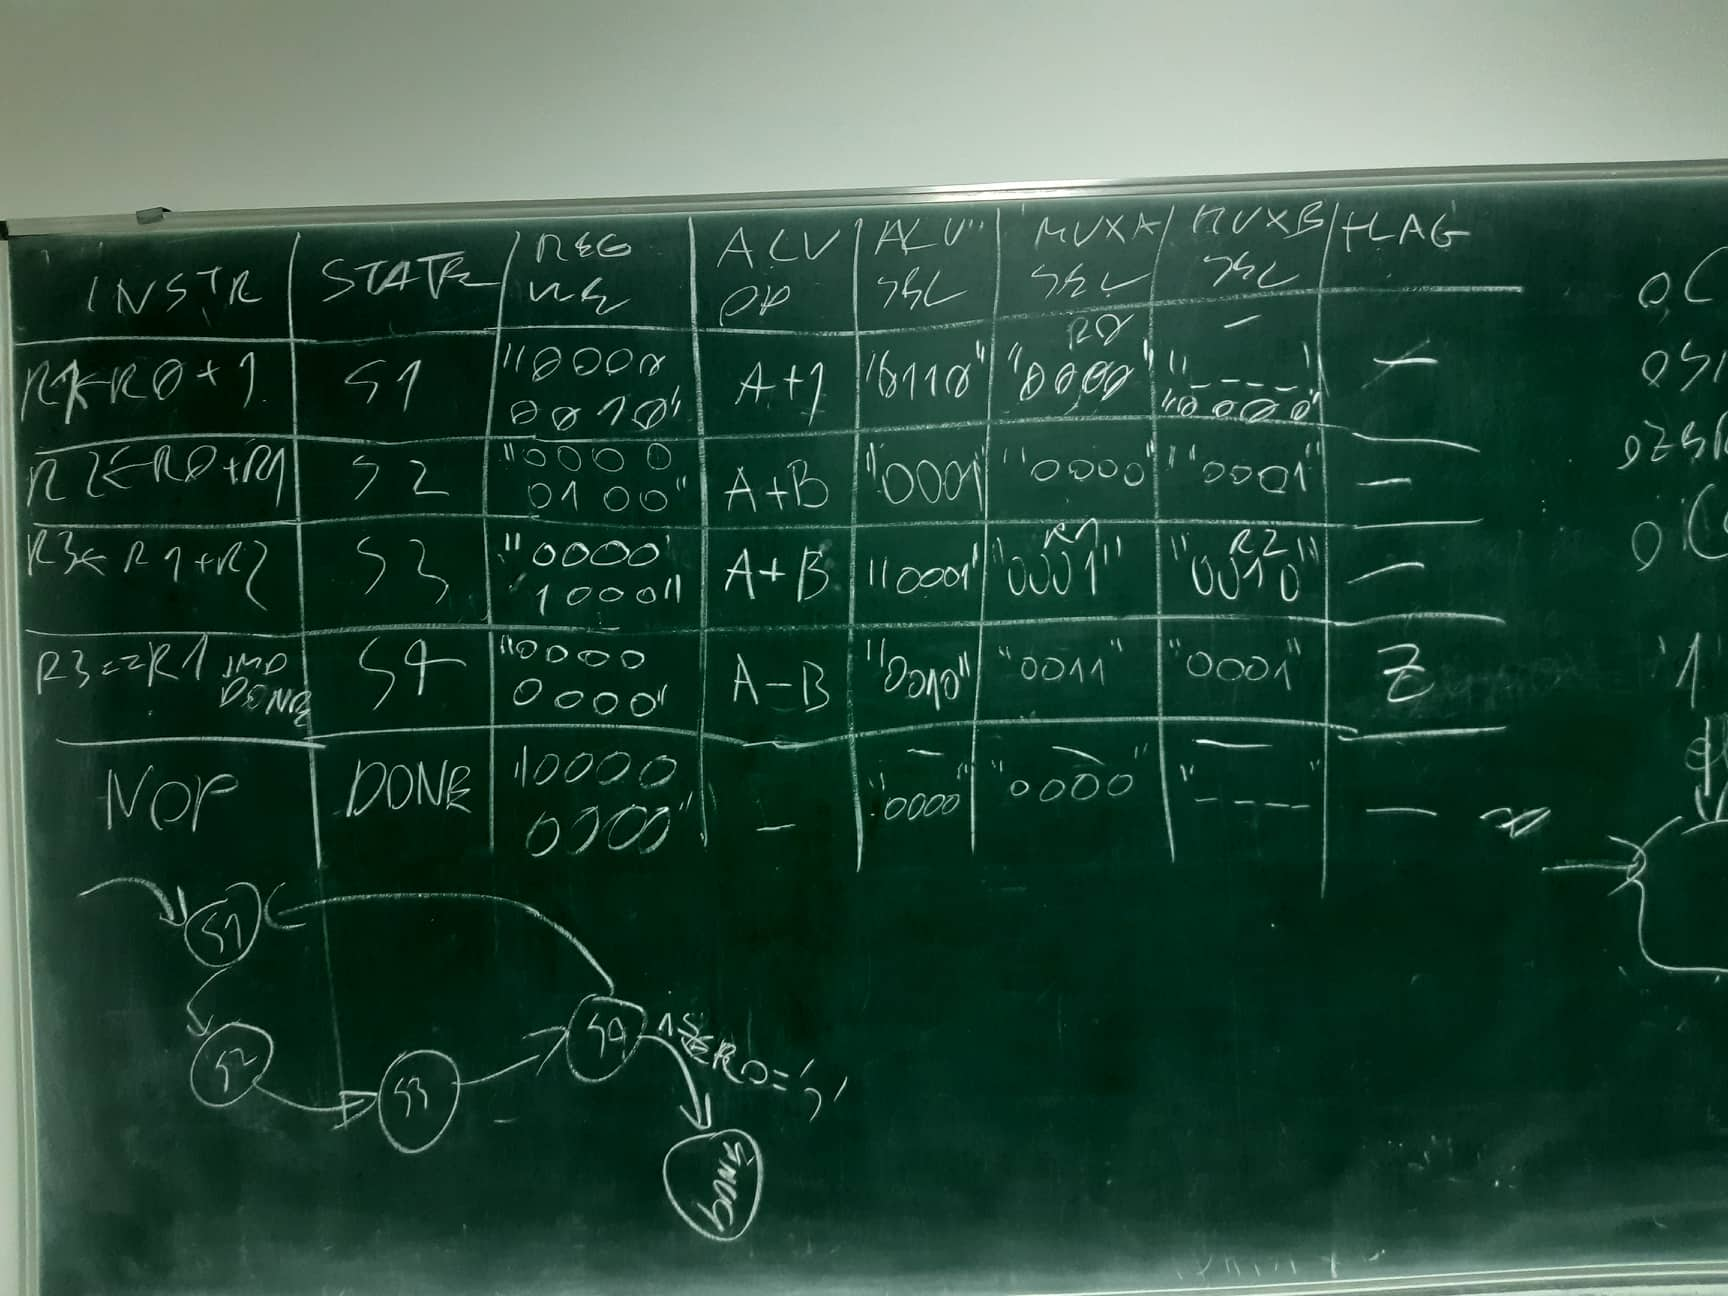 INSTR | STATE | REG WE | ALU OP | ALU SEL | MUXA SEL | MUXB SEL | FLAG
R1←R0+1 | S1 | "0000 0010" | A+1 | "0110" | R0 "0000" | – "----" "0000" | –
R2←R0+R1 | S2 | "0000 0100" | A+B | "0001" | "0000" | "0001" | –
R3←R1+R2 | S3 | "0000 1000" | A+B | "0001" | R1 "0001" | R2 "0010" | –
R3==R1 JMP DONE | S4 | "0000 0000" | A-B | "0010" | "0011" | "0001" | Z
NOP | DONE | "0000 0000" | – | – "0000" | – "0000" | – "----" | –
S1
S2
S3
S4
DONE